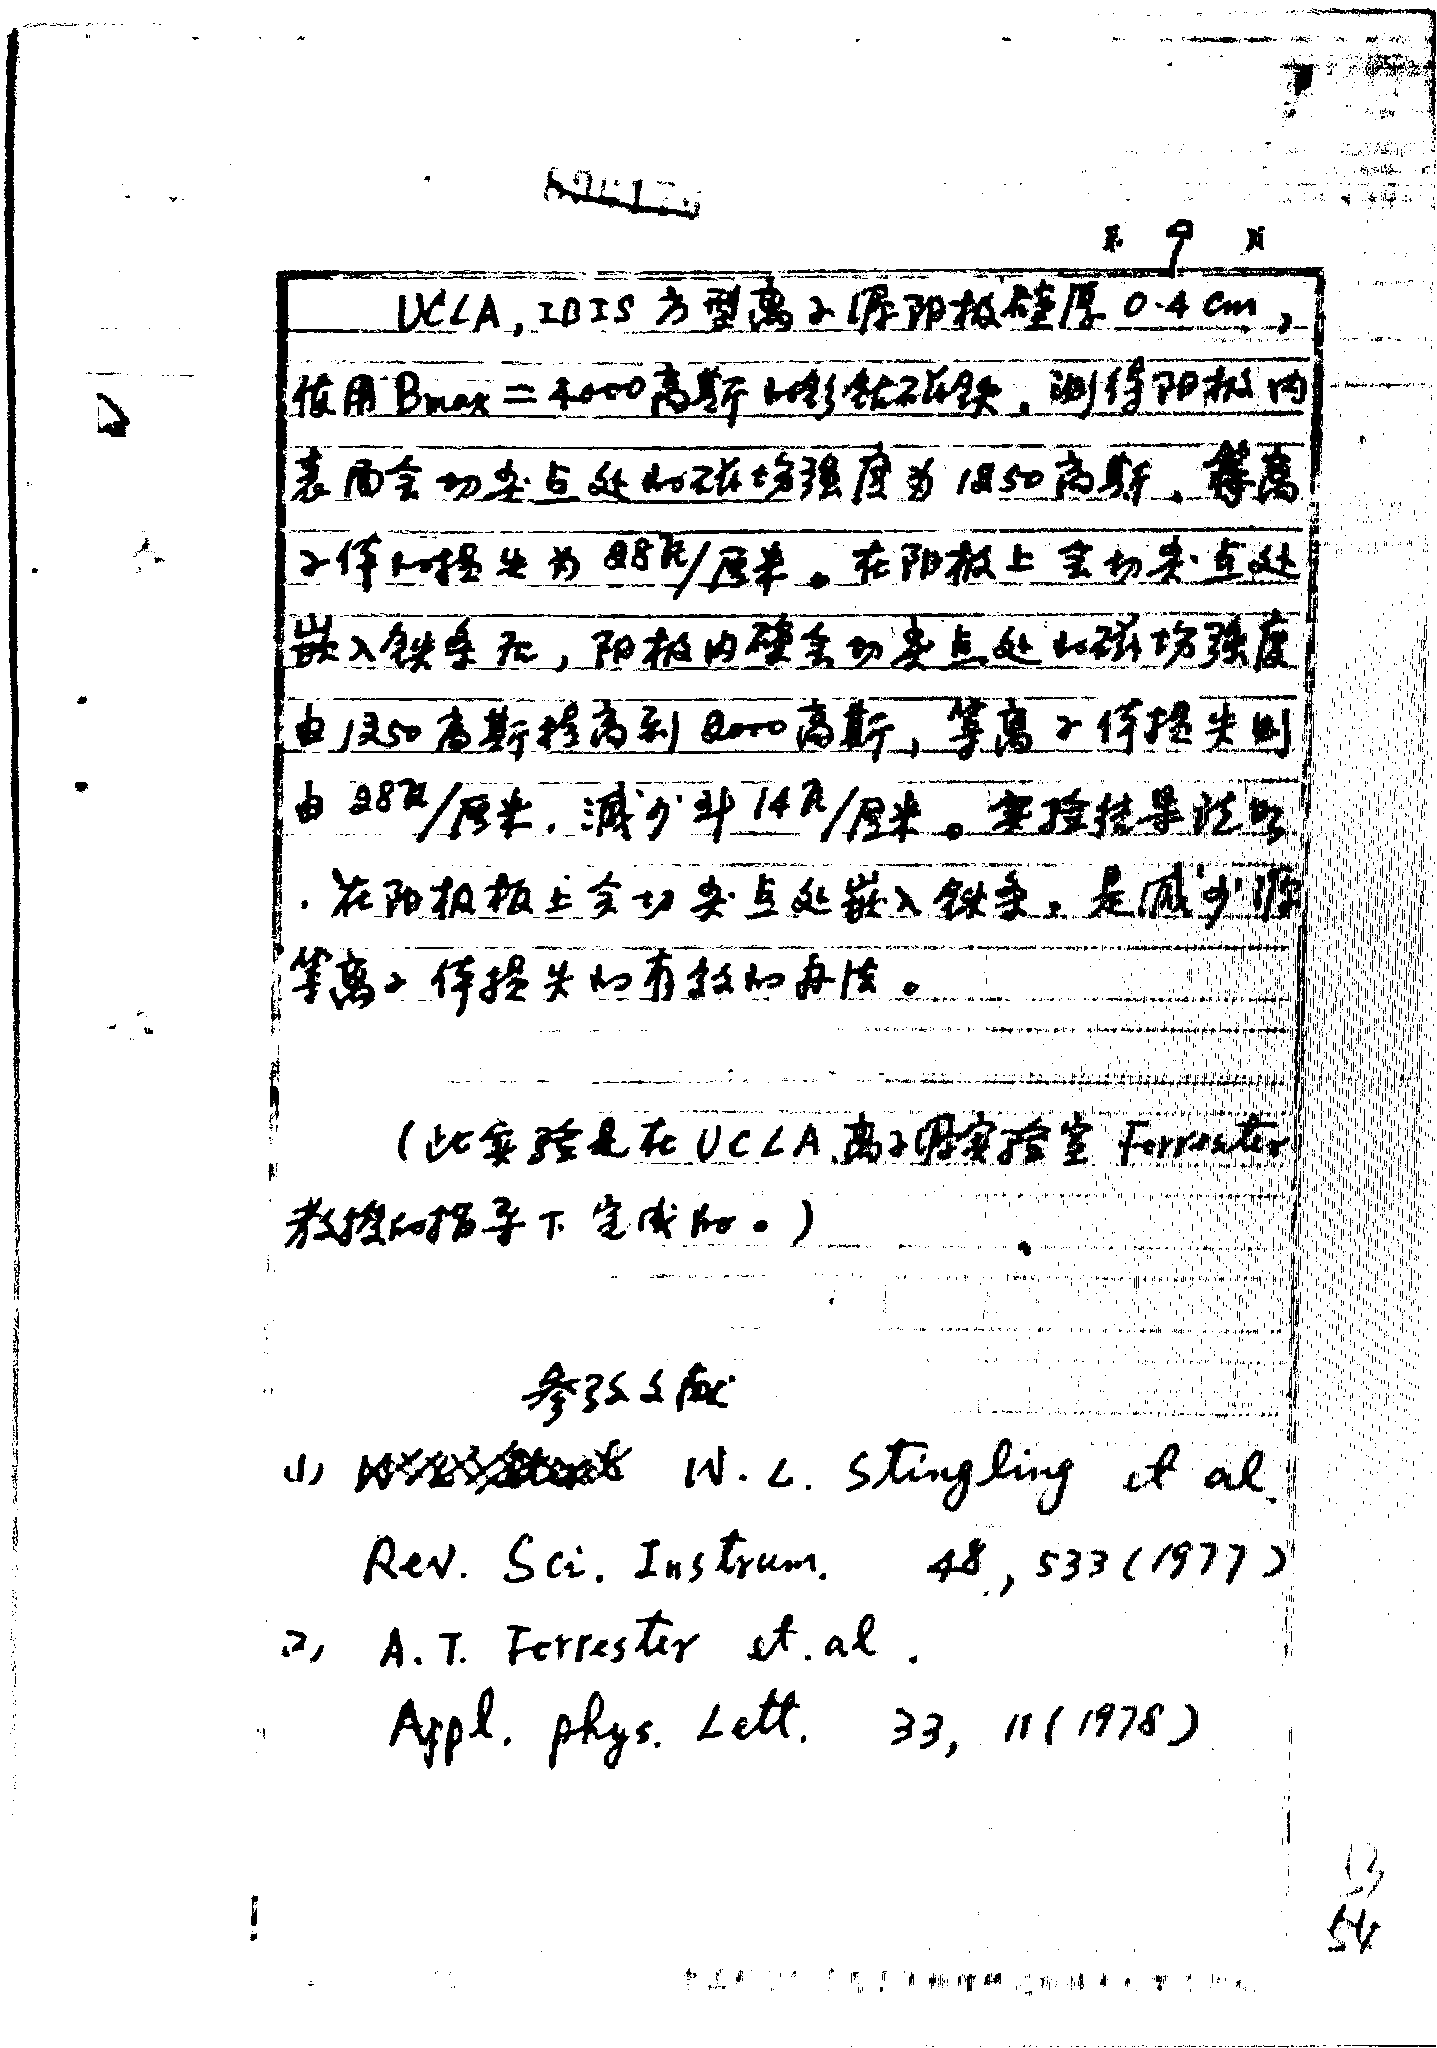 第 9 页
UCLA, IBIS 方型离子源阳极壁厚 0.4 cm,
使用 Bmax = 4000高斯的钐钴磁铁,测得阳极内
表面会切尖点处的磁场强度为1250高斯,等离
子体的损失为 28%/厘米。在阳极上会切尖点处
嵌入铁条后,阳极内壁会切尖点处的磁场强度
由1250高斯提高到2000高斯,等离子体损失则
由 28%/厘米,减少到 14%/厘米。实验结果说明
,在阳极板上会切尖点处嵌入铁条,是减少源
等离子体损失的有效的办法。
(此实验是在UCLA离子源实验室 Forrester
教授的指导下完成的。)
参考文献
(1) W. L. Stingling et al
Rev. Sci. Instrum. 48, 533 (1977)
(2) A. T. Forrester et. al.
Appl. phys. Lett. 33, 11 (1978)
54